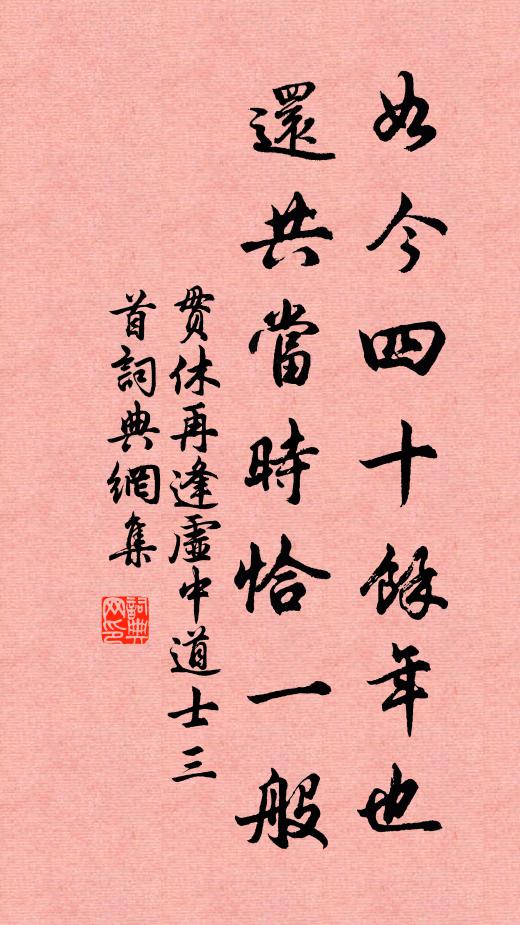 如今四十餘年也
還共當時恰一般
貫休再逢虛中道士三
首詞典網集
詞典
网印